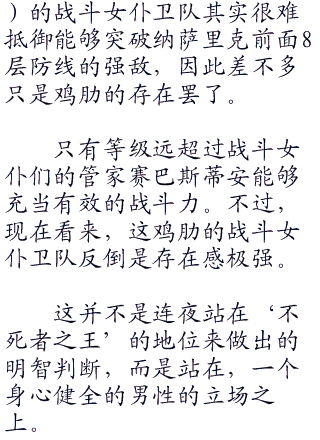 ）的战斗女仆卫队其实很难
抵御能够突破纳萨里克前面8
层防线的强敌，因此差不多
只是鸡肋的存在罢了。
只有等级远超过战斗女
仆们的管家赛巴斯蒂安能够
充当有效的战斗力。不过，
现在看来，这鸡肋的战斗女
仆卫队反倒是存在感极强。
这并不是连夜站在‘不
死者之王’的地位来做出的
明智判断，而是站在，一个
身心健全的男性的立场之
上。